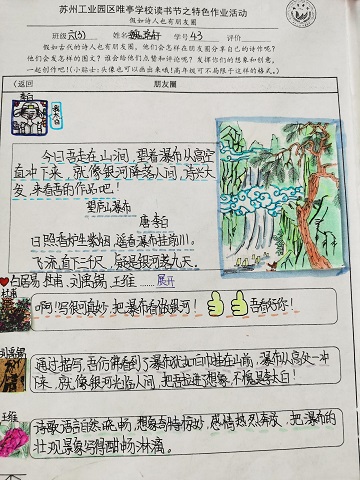 苏州工业园区唯亭学校读书节之特色作业活动
假如诗人也有朋友圈
班级 六(3) 姓名 学号 43 评价
假如古代的诗人也有朋友圈，他们会怎样在朋友圈分享自己的诗作呢？
他们会发怎样的图文？谁会给他们点赞和评论呢？发挥你的想象和创意，
一起创作吧！（小贴士：头像也可以画出来哦！高年级可不局限于这样的格式。）
〈返回 朋友圈
李白
今日吾走在山间，望着瀑布从高空
直冲下来，就像银河降落人间，诗兴大
发，来看吾的作品吧！
望庐山瀑布
唐 李白
日照香炉生紫烟，遥看瀑布挂前川。
飞流直下三千尺，疑是银河落九天。
白居易、杜甫、刘禹锡、王维……展开
杜甫
啊！写得真妙，把瀑布看做银河！ 吾看好你！
刘禹锡
通过描写，吾仿佛看到了瀑布犹如白巾挂在山前，瀑布从高处一冲
下来，就像银河光临人间，把吾拉进想象，不愧是李太白！
王维
诗歌语言自然流畅，想象奇特惊妙，感情热烈奔放，把瀑布的
壮观景象写得酣畅淋漓。